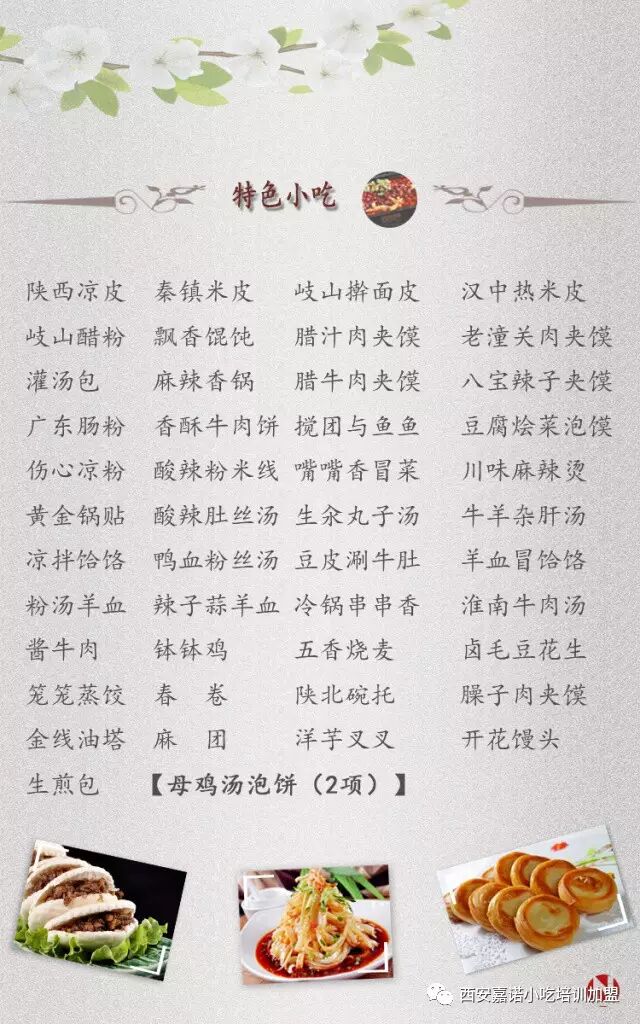 特色小吃
陕西凉皮 秦镇米皮 岐山擀面皮 汉中热米皮
岐山醋粉 飘香馄饨 腊汁肉夹馍 老潼关肉夹馍
灌汤包 麻辣香锅 腊牛肉夹馍 八宝辣子夹馍
广东肠粉 香酥牛肉饼 搅团与鱼鱼 豆腐烩菜泡馍
伤心凉粉 酸辣粉米线 嘴嘴香冒菜 川味麻辣烫
黄金锅贴 酸辣肚丝汤 生汆丸子汤 牛羊杂肝汤
凉拌饸饹 鸭血粉丝汤 豆皮涮牛肚 羊血冒饸饹
粉汤羊血 辣子蒜羊血 冷锅串串香 淮南牛肉汤
酱牛肉 钵钵鸡 五香烧麦 卤毛豆花生
笼笼蒸饺 春 卷 陕北碗托 臊子肉夹馍
金线油塔 麻 团 洋芋叉叉 开花馒头
生煎包 【母鸡汤泡饼（2项）】
西安嘉诺小吃培训加盟